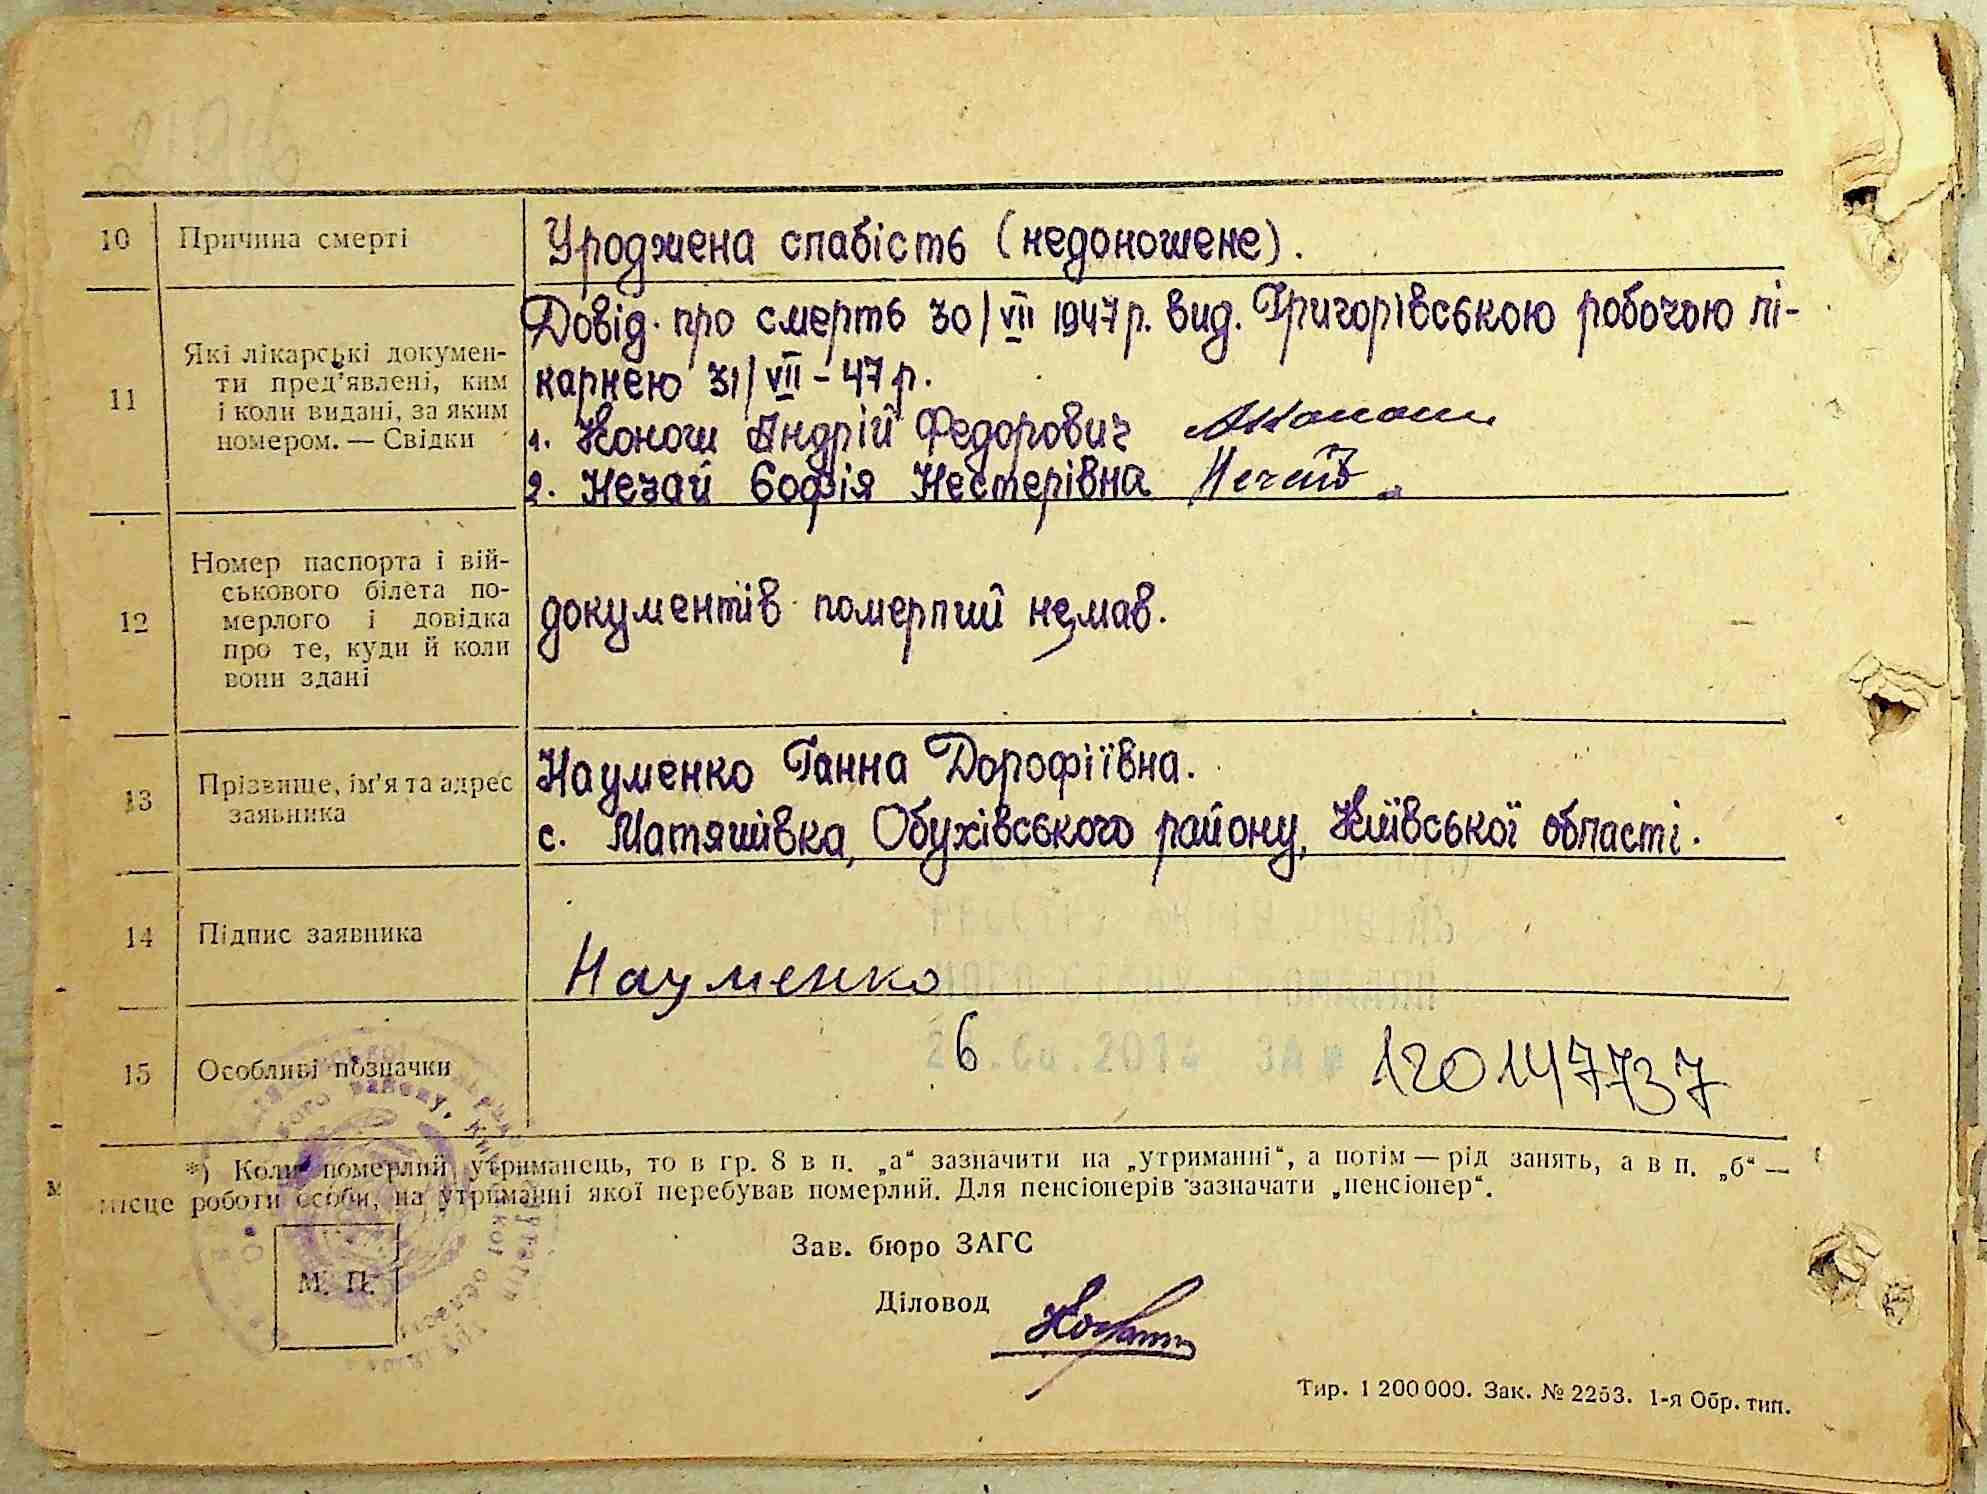 10 Причина смерті Уроджена слабість (недоношене).
11 Які лікарські докумен-
ти пред'явлені, ким
і коли видані, за яким
номером. — Свідки
Довід. про смерть 30/VII 1947 р. вид. Григорівською робочою лі-
карнею 31/VII - 47 р.
1. Конош Андрій Федорович
2. Нечай Софія Нестерівна Нечай
12 Номер паспорта і вій-
ськового білета по-
мерлого і довідка
про те, куди й коли
вони здані
документів померлий немав.
13 Прізвище, ім'я та адрес
заявника
Науменко Ганна Дорофіївна.
с. Матяшівка, Обухівського району, Київської області.
14 Підпис заявника
Науменко
15 Особливі позначки
6
120147737
*) Коли померлий утриманець, то в гр. 8 в п. „а“ зазначити на „утриманні“, а потім — рід занять, а в п. „б“ —
місце роботи особи, на утриманні якої перебував померлий. Для пенсіонерів зазначати „пенсіонер“.
Зав. бюро ЗАГС
М. П.
Діловод
Тир. 1 200 000. Зак. № 2253. 1-я Обр. тип.